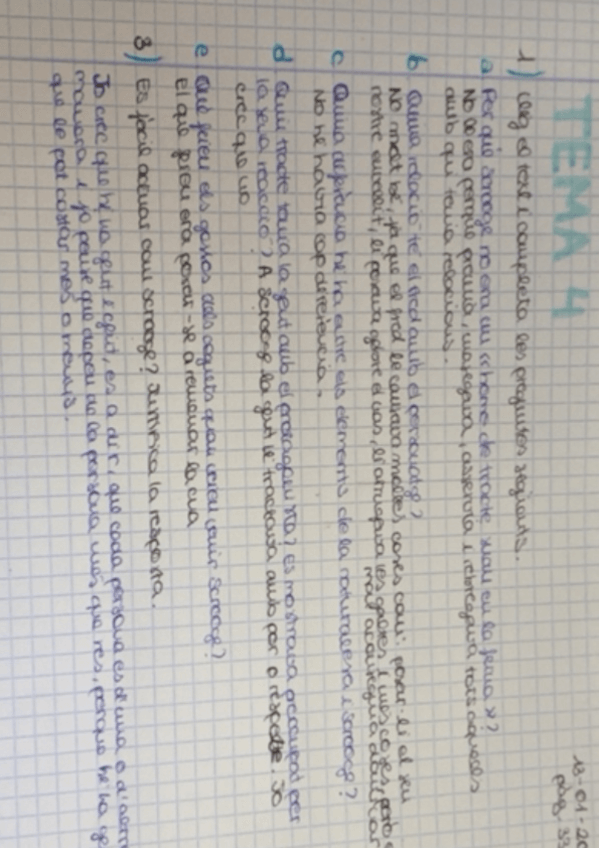 TEMA 4
18-01-20
pàg: 33
1) Llegeix el text i completa les preguntes següents.
a Per què Scrooge no era un "home de tracte suau en la feina"?
No ho era perquè premia, masegava, i rebregava tots aquells
amb qui tenia relacions.
b Quina relació té el fred amb el personatge?
No molt bé, ja que el fred li causava moltes coses com: posar-li el seu
nostre, li posava els ulls, les galtes i més coses però
mai aconseguia
c Quina diferència hi ha entre els elements de la naturalesa i Scrooge?
No hi havia cap diferència.
d Quin tracte tenia la gent amb el protagonista? es mostrava preocupat per
la seva reacció? A Scrooge la gent le tractava amb por o respecte. Jo
crec que no
e Què feien els gossos dels ceguets quan veien venir Scrooge?
El que feien era posar-se a remenar la cua
3) Es fàcil actuar com Scrooge? Justifica la resposta.
Jo crec que hi ha gent i gent, es a dir, que cada persona es d'una o d'altra
manera i jo penso que depen de la persona més que res, perque hi ha ge
que le pot costar mes o menys.